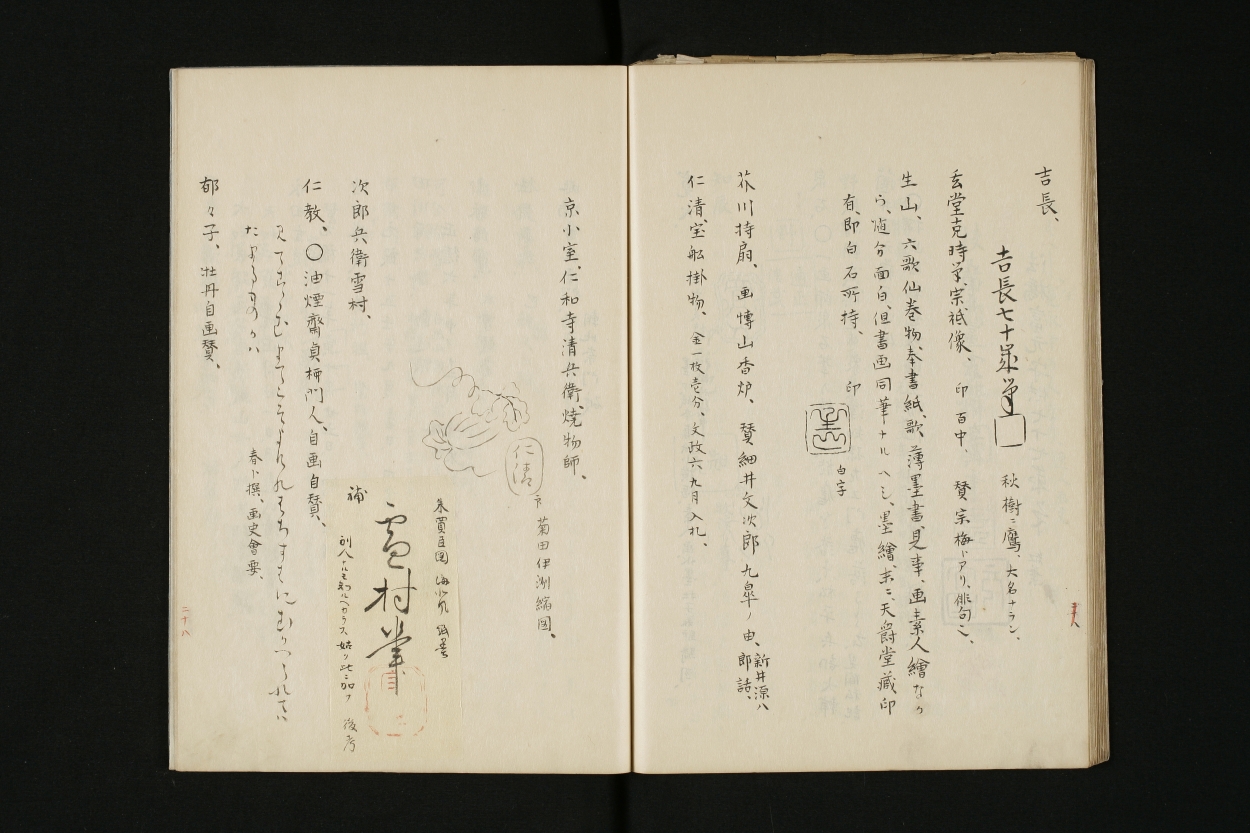 吉長、
吉長七十歳筆
秋樹ニ鷹、大名ナラン、
玄堂克時筆、宗祇像、 印 百中、 賛 宗梅トアリ、俳句ニ、
生山、六歌仙巻物、奉書紙、歌、薄墨畫、見事、画、素人繪ながら、
随分面白、但書画同筆ナルヘシ、墨繪、末ニ、天爵堂藏印
有、即白石所持、 印
白字
芥川持扇、 画博山香炉、 賛細井文次郎九皐ノ由、新井源八郎話、
仁清、宝船掛物、 金一枚壱分、文政六九月入札、
京小室、仁和寺清兵衛、焼物師、
仁清
菊田伊洲縮圖、
次郎兵衛雪村、
朱買臣圖 紙墨
雪村筆
補
別人ナルモ知ルヘカラス、姑ク此ニ加フ 後考
仁教、〇油煙齋貞柳門人、自画自賛、
春卜撰、画史會要、
郁々子、牡丹自画賛、
二十八